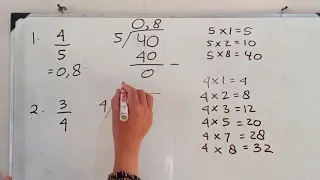 1. 4/5
= 0,8
0,8
5 / 40
40
0 -
2. 3/4
4
5 x 1 = 5
5 x 2 = 10
5 x 8 = 40
4 x 1 = 4
4 x 2 = 8
4 x 3 = 12
4 x 5 = 20
4 x 7 = 28
4 x 8 = 32